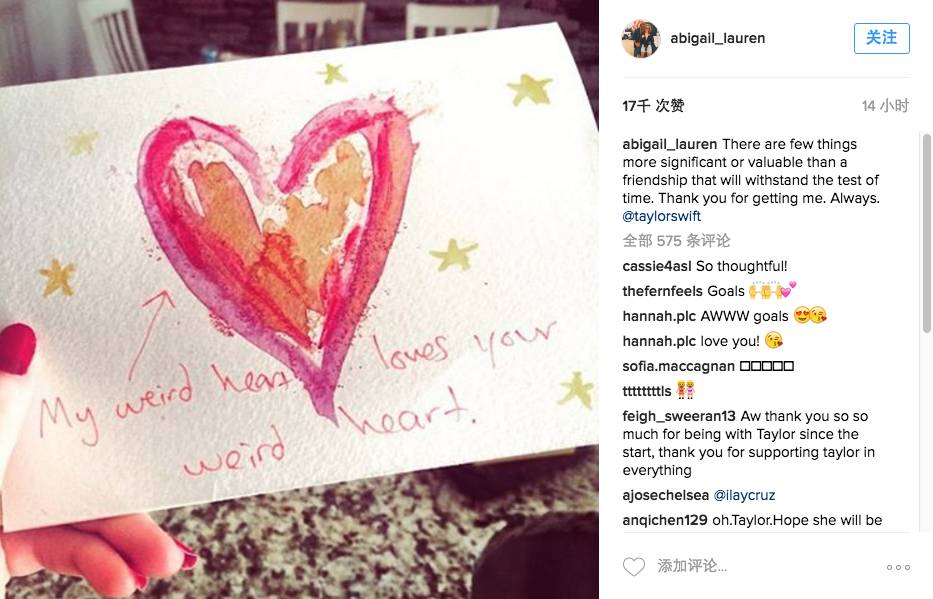 My weird heart loves your
weird heart.
abigail_lauren
关注
17千 次赞
14 小时
abigail_lauren There are few things
more significant or valuable than a
friendship that will withstand the test of
time. Thank you for getting me. Always.
@taylorswift
全部 575 条评论
cassie4asl So thoughtful!
thefernfeels Goals 🙌🙌💕
hannah.plc AWWW goals 😍😘
hannah.plc love you! 😘
sofia.maccagnan □□□□□
ttttttttls 👭
feigh_sweeran13 Aw thank you so so
much for being with Taylor since the
start, thank you for supporting taylor in
everything
ajosechelsea @ilaycruz
anqichen129 oh.Taylor.Hope she will be
添加评论...